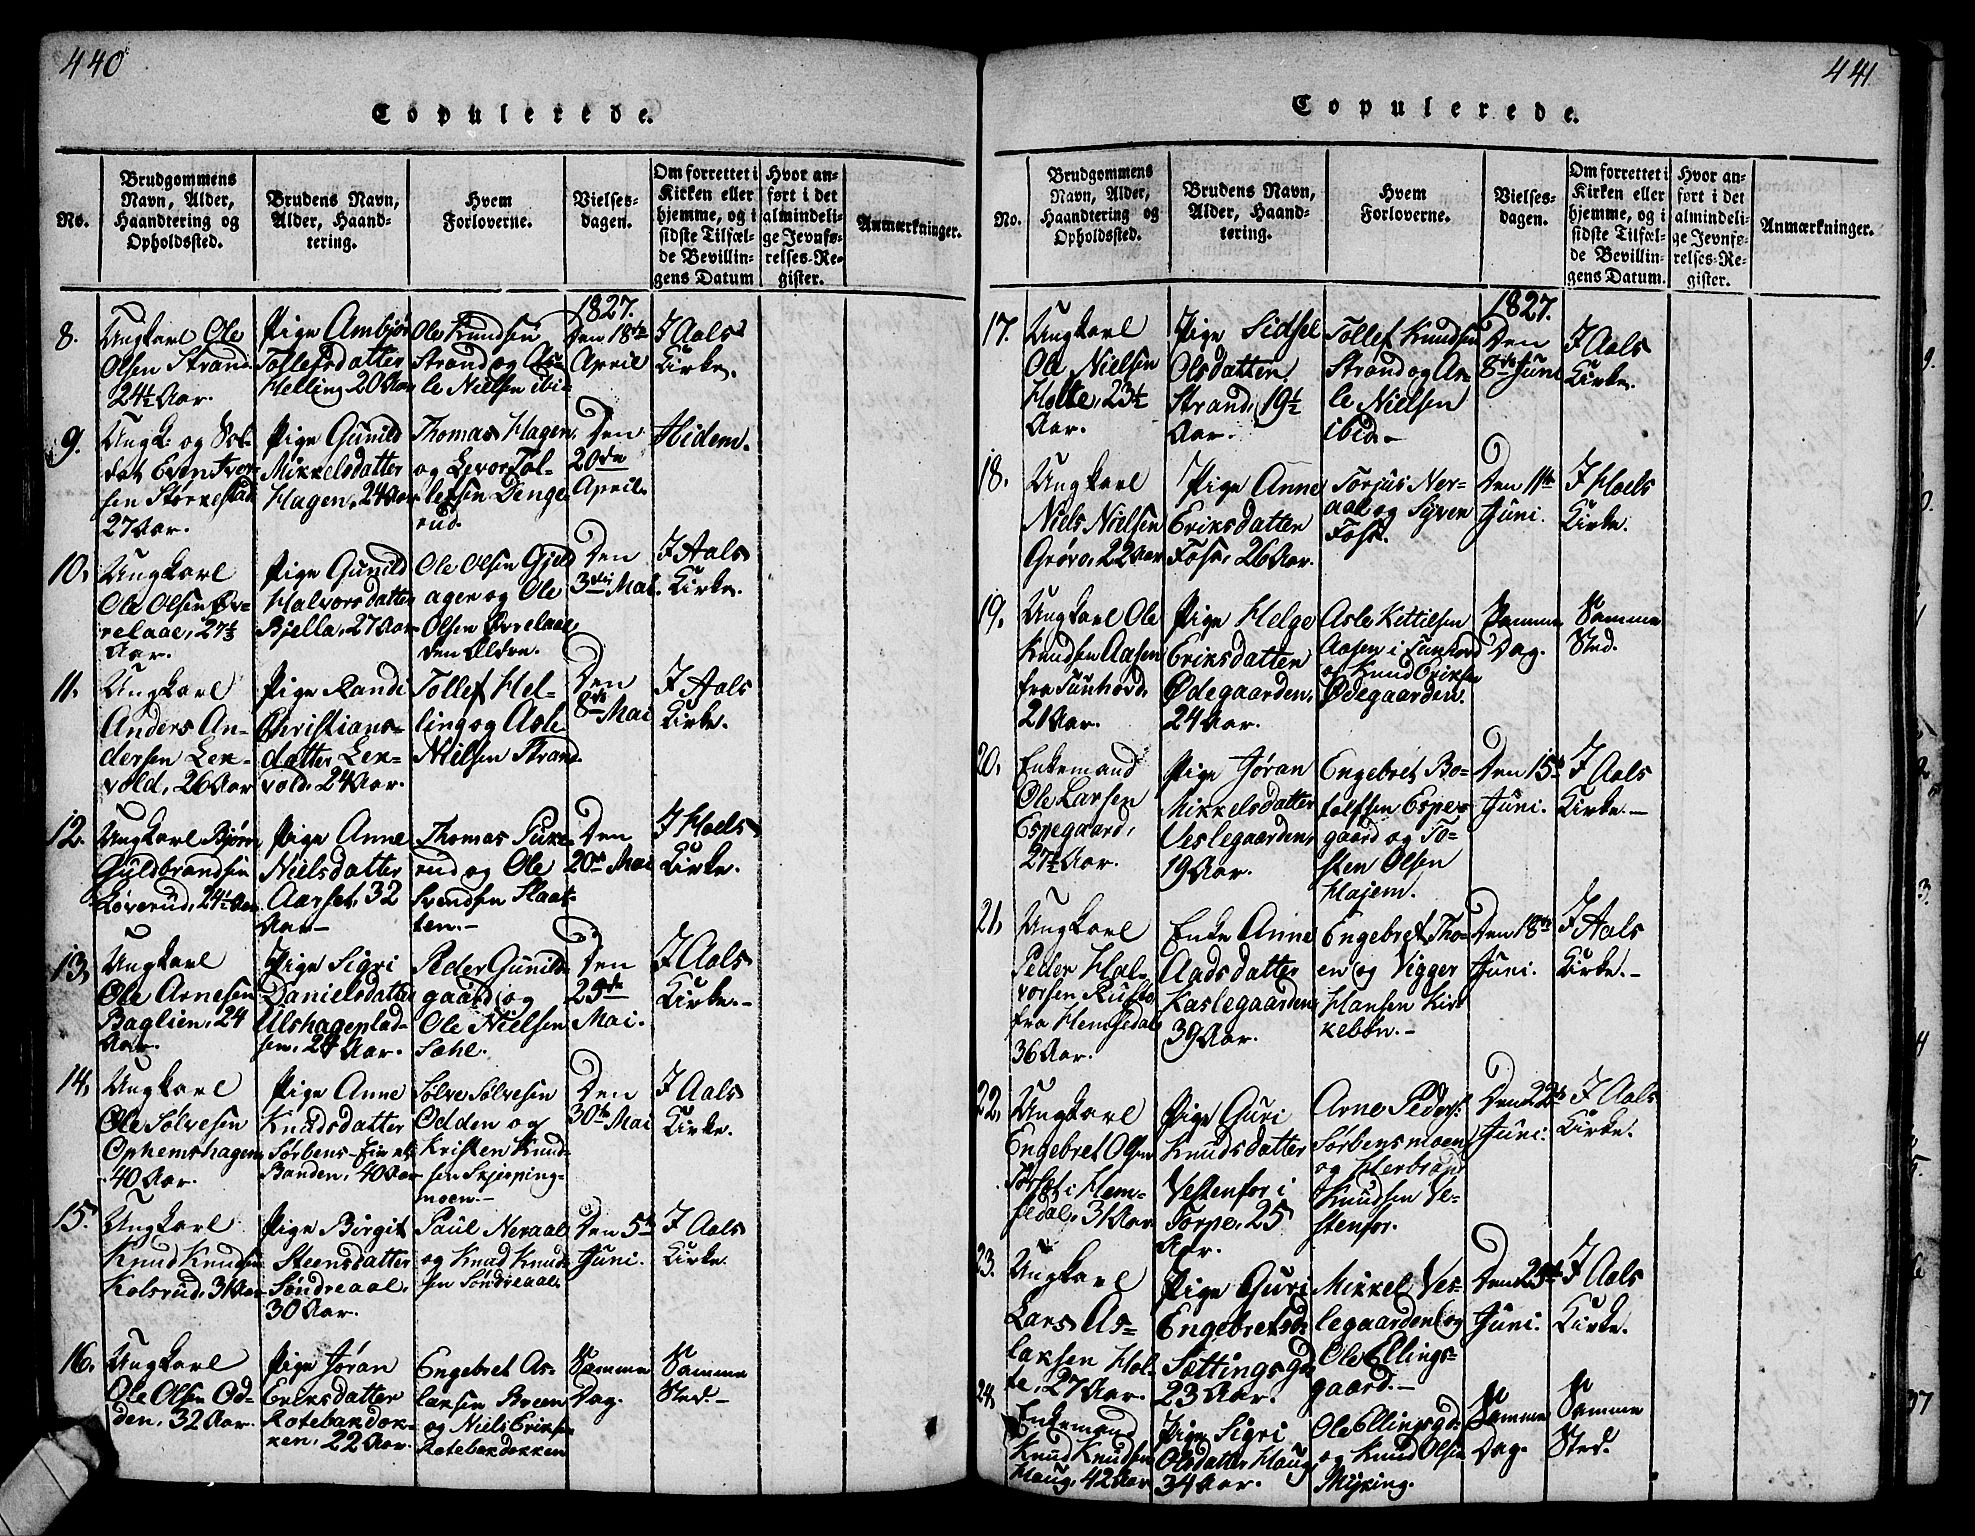 440
Copulerede.
No.
Brudgommens
Navn, Alder,
Haandtering og
Opholdssted.
Brudens Navn,
Alder, Haand-
tering.
Hvem
Forloverne.
Vielses-
dagen.
Om forrettet i
Kirken eller
hjemme, og i
sidste Tilfæl-
de Bevillin-
gens Datum
Hvor an-
ført i det
almindeli-
ge Jevnfø-
relses-Re-
gister.
Anmærkninger.
1827.
8.
Ungkarl Ole
Olsen Strand
24½ Aar.
Pige Ambjør
Tollefsdatter
Helling 20 Aar
Ole Knudsen
Strand og As-
le Nielsen ibid
Den 18de
April
I Aals
Kirke.
9.
Ungk: og Sol-
dat Even Iver-
sen Størkestad
27 Aar.
Pige Gunild
Mikkelsdatter
Hagen, 24 Aar
Thomas Hagen
og Levor Tol-
lefsen Denge-
rud.
Den
20de
April.
Hidem.
10,
Ungkarl
Ole Olsen Øv-
relaae, 27½
Aar.
Pige Gunild
Halvorsdatter
Bjella, 27 Aar
Ole Olsen Gjeld-
ager og Ole
Olsen Øvrelaae
den Ældre.
Den
3die Mai.
I Aals
Kirke.
11.
Ungkarl
Anders An-
dersen Lex-
vold, 26 Aar
Pige Randi
Christians-
datter Lex-
vold, 24 Aar.
Tollef Hel-
ling og Asle
Nielsen Strand.
Den
8de Mai
I Aals
Kirke.
12.
Ungkarl Bjørn
Guldbrandsen
Løverud, 24½ Aar
Pige Anne
Nielsdatter
Aarset, 32
Aar-
Thomas Puke-
rud og Ole
Svendsen Slaat-
ten.-
Den
20de Mai
I Hoels
Kirke.
13,
Ungkarl
Ole Arnesen
Baglien, 24
Aar.
Pige Sigri
Danielsdatter
Ulshageplad-
sen, 24 Aar.
Peder Gunild-
gaard og
Ole Nielsen
Sæhl.
Den
25de
Mai.
I Aals
Kirke.-
14,
Ungkarl
Ole Sølvesen
Ophemshagen
40 Aar.
Pige Anne
Knudsdatter
Sørbens-Eie
Banden, 40 Aar
Sølve Sølvesen
Odden og
Kristen Knud-
sen Skjerping-
moen.-
Den
30te Mai
I Aals
Kirke.
15.
Ungkarl
Knud Knudsen
Kolsrud, 31 Aar
Pige Birgit
Steensdatter
Søndreaal,
30 Aar.
Paul Neraal
og Knud Knud-
sen Søndreaal.
Den 5te
Juni.
I Aals
Kirke.
16.
Ungkarl
Ole Olsen Od-
den, 32 Aar.
Pige Jøran
Eriksdatter
Rotebandok-
ken, 22 Aar.
Engebret As-
laksen Breen
og Niels Eriksen
Rotebakdokken
Samme
Dag.
Samme
Sted.-
441
Copulerede.
No.
Brudgommens
Navn, Alder,
Haandtering og
Opholdssted.
Brudens Navn,
Alder, Haand-
tering.
Hvem
Forloverne.
Vielses-
dagen.
Om forrettet i
Kirken eller
hjemme, og i
sidste Tilfæl-
de Bevillin-
gens Datum.
Hvor an-
ført i det
almindeli-
ge Jevnfø-
relses-Re-
gister.
Anmærkninger.
1827.
17.
Ungkarl
Ole Nielsen
Holte, 23½
Aar.
Pige Sidsel
Olsdatter
Strand, 19½
Aar.
Tollef Knudsen
Strand og As-
le Nielsen
ibid.-
Den
8de Juni
I Aals
Kirke.
18.
Ungkarl
Niels Nielsen
Grøvo, 22 Aar
Pige Anne
Eriksdatter
Foss, 26 Aar.
Torjus Ner-
aal og Syver
Foss.
Den 11te
Juni.
I Hoels
Kirke.
19.
Ungkarl Ole
Knudsen Aasen
fra Tunhovd,
21 Aar.
Pige Helge
Eriksdatter
Ødegaarden,
24 Aar.
Asle Kittilsen
Aasen i Tunhovd
og Knud Eriksen
Ødegaarden.
Samme
Dag.
Samme
Sted.
20.
Enkemand
Ole Larsen
Espegaard,
27½ Aar.
Pige Jøran
Mikkelsdatter
Veslegaarden,
19 Aar.
Engebret Bo-
tolfsen Espe-
gaard og To-
sten Olsen
Hajem.
Den 15de
Juni.
I Aals
Kirke.-
21,
Ungkarl
Peder Hal-
vorsen Rusto
fra Hemsedal
36 Aar.
Enke Anne
Aadsdatter
Kaslegaarden
39 Aar.
Engebret Tho-
en og Vigger
Hansen Kir-
kebøn.-
Den 18de
Juni.
I Aals
Kirke.-
22,
Ungkarl
Engebret Olsen
Torset i Hem-
sedal, 31 Aar
Pige Guri
Knudsdatter
Vestenfor i
Torpe, 25
Aar.
Arne Peders:
Sørbensmoen
og Herbrand
Knudsen Ve-
stenfor.
Den 22de
Juni.
I Aals
Kirke.
23.
Ungkarl
Lars As-
laksen Hol-
te, 27 Aar.
Pige Guri
Engebretsd:
Sættingsgd
23 Aar.
Mikkel Ves-
legaarden og
Ole Ellings-
gaard.-
Den 23de
Juni.
I Aals
Kirke.
24,
Enkemand
Knud Knudsen
Haug, 42 Aar
Pige Sigri
Olsdatter Haug
34 Aar.
Ole Ellingsgd:
og Knud Olsen
Myking.
Samme
Dag.
Samme
Sted.